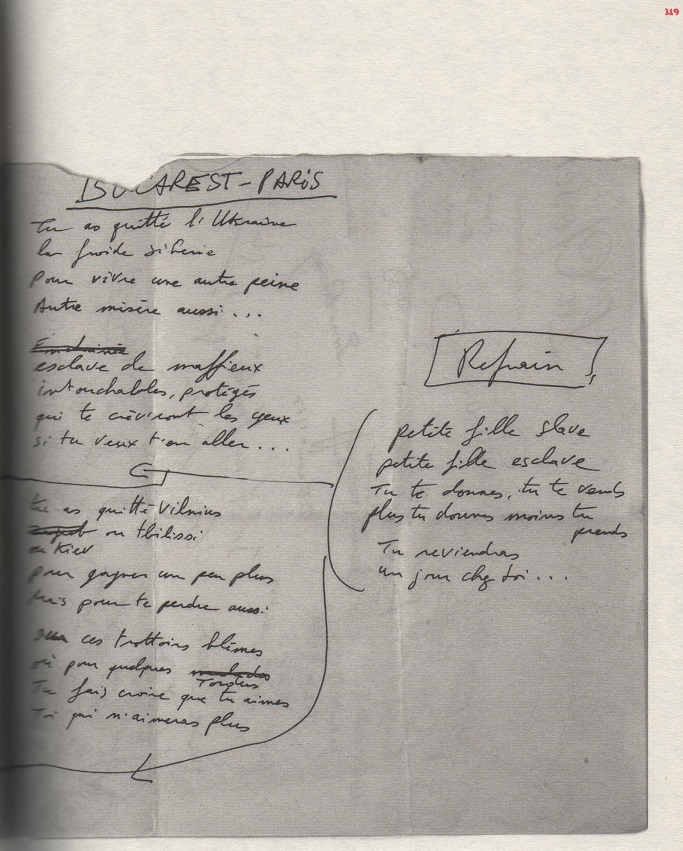 319
BUCAREST-PARIS
Tu as quitté l'Ukraine
la froide Sibérie
Pour vivre une autre peine
Autre misère aussi...
esclave de maffieux
intouchables, protégés
qui te crèviront les yeux
si tu veux t'en aller...
tu as quitté Vilnius
ou tbilissi
ou Kiev
pour gagner un peu plus
Mais pour te perdre aussi
ces trottoirs blêmes
où pour quelques
Tordus
Tu fais croire que tu aimes
Toi qui n'aimeras plus
Refrain
petite fille slave
petite fille esclave
Tu te donnes, tu te vends
plus tu donnes moins tu
prends
Tu reviendras
un jour chez toi...